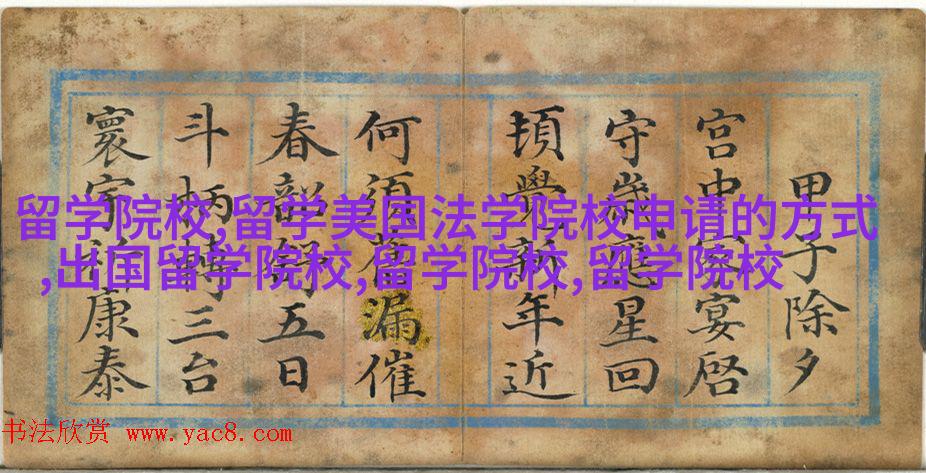 甲子除夕
宮中家宴啓
守歲應星回
頓覺新年近
何須舊漏催
春韶五日
斗柄轉三台
寰宇康泰
留学院校,留学美国法学院校申请的方式
,出国留学院校,留学院校,留学院校
书法欣赏 www.yac8.com